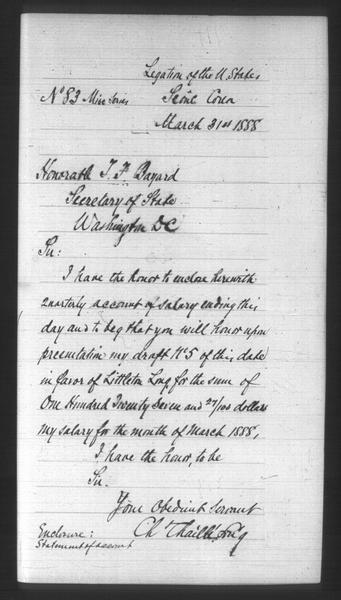 Legation of the U. States
No 83 Misc Series Seoul Corea
March 31st 1888
Honorable T. F. Bayard
Secretary of State
Washington DC
Sir:
I have the honor to enclose herewith
quarterly account of salary ending this
day and to beg that you will honor upon
presentation my draft No 5 of this date
in favor of Littleton Long, for the sum of
One Hundred Twenty Seven and 27/100 dollars
my salary for the month of March 1888,
I have the honor, to be
Sir.
Your Obedient Servant
Ch Chaillé Long
Enclosure:
Statement of account